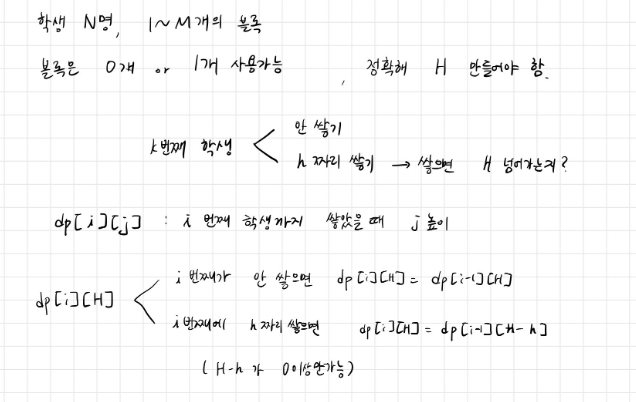 학생 N명, 1~M개의 블록
블록은 0개 or 1개 사용가능, 정확해 H 만들어야 함.
안 쌓기
k번째 학생
h 짜리 쌓기 → 쌓으면 H 넘어가는지?
dp[i][j] : i 번째 학생까지 쌓았을때 j 높이
i 번째가 안 쌓으면 dp[i][H] = dp[i-1][H]
dp[i][H]
i 번째에 h 짜리 쌓으면 dp[i][H] = dp[i-1][H-h]
(H-h 가 0이상만가능)